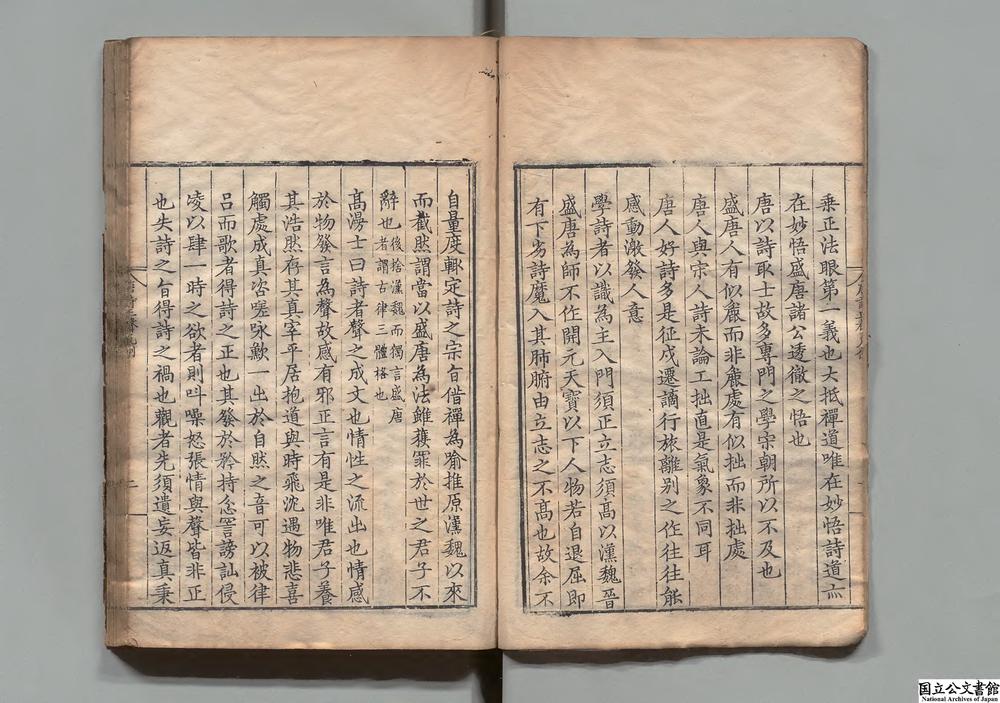 乘正法眼第一義也大抵禪道唯在妙悟詩道亦
在妙悟盛唐諸公透徹之悟也
唐以詩取士故多專門之學宋朝所以不及也
盛唐人有似麄而非麄處有似拙而非拙處
唐人與宋人詩未論工拙直是氣象不同耳
唐人好詩多是征戍遷謫行旅離別之作往往能
感動激發人意
學詩者以識為主入門須正立志須高以漢魏晉
盛唐為師不作開元天寶以下人物若自退屈即
有下劣詩魔入其肺腑由立志之不高也故余不
自量度輙定詩之宗旨借禪為喻推原漢魏以來
而截然謂當以盛唐為法雖獲罪於世之君子不
辭也後捨漢魏而獨言盛唐
者謂古律三體格也
高漫士曰詩者聲之成文也情性之流出也情感
於物發言為聲故感有邪正言有是非唯君子養
其浩然存其真宰平居抱道與時飛沈遇物悲喜
觸處成真咨嗟咏歎一出於自然之音可以被律
呂而歌者得詩之正也其發於矜持忿詈謗訕侵
凌以肆一時之欲者則叫噪怒張情與聲皆非正
也失詩之旨得詩之禍也觀者先須遣妄返真秉
国立公文書館
National Archives of Japan